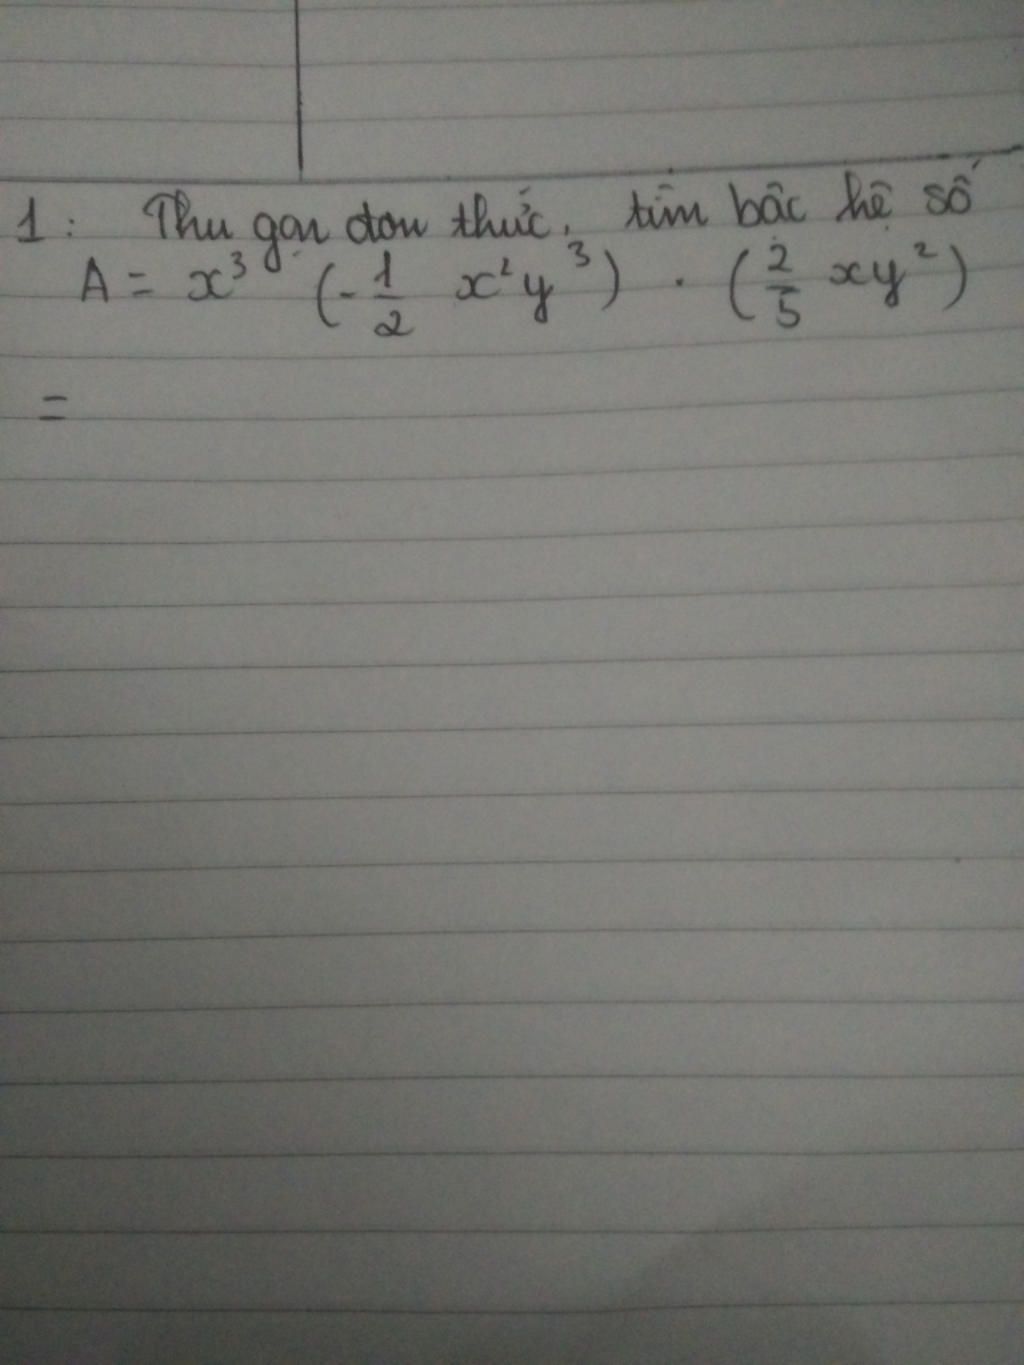 1: Thu gọn đơn thức, tìm bậc hệ số
A = x³ (-1/2 x²y³) . (2/5 xy²)
=